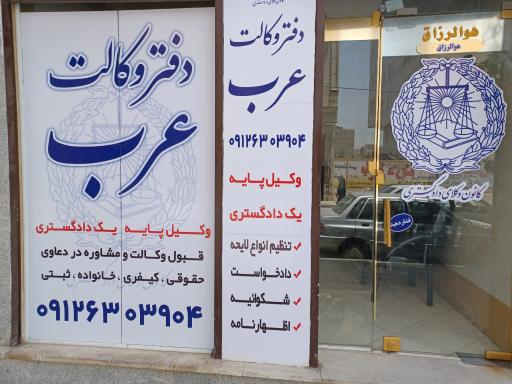 دفتر وکالت
عرب
وکیل پایه یک دادگستری
قبول وکالت و مشاوره در دعاوی
حقوقی ، کیفری ، خانواده ، ثبتی
۰۹۱۲۶۳۰۳۹۰۴
دفتر وکالت
عرب
۰۹۱۲۶۳۰۳۹۰۴
وکیل پایه
یک دادگستری
تنظیم انواع لایحه
دادخواست
شکوائیه
اظهارنامه
هوالرزاق
هوالرزاق
کانون وکلای دادگستری
فشار دهید